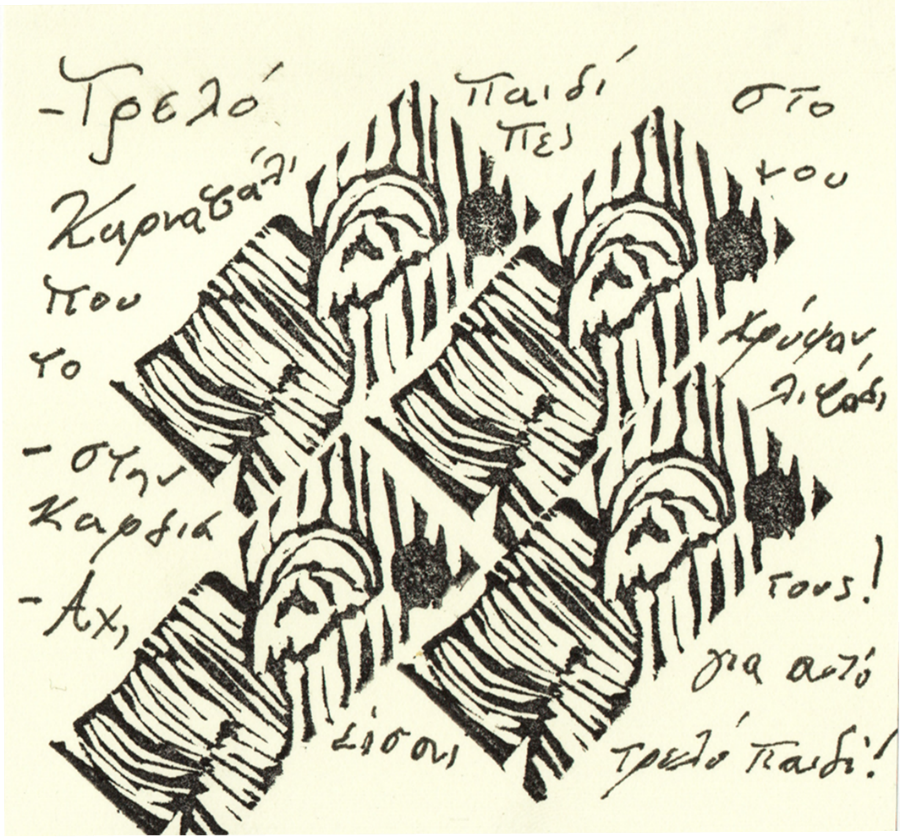 -Τρελό παιδί στο
πες μου
Καρναβάλι
που
το κρύψαν
λιβάδι
- στην
καρδιά
τους!
- Αχ,
για αυτό
είσαι τρελό παιδί!